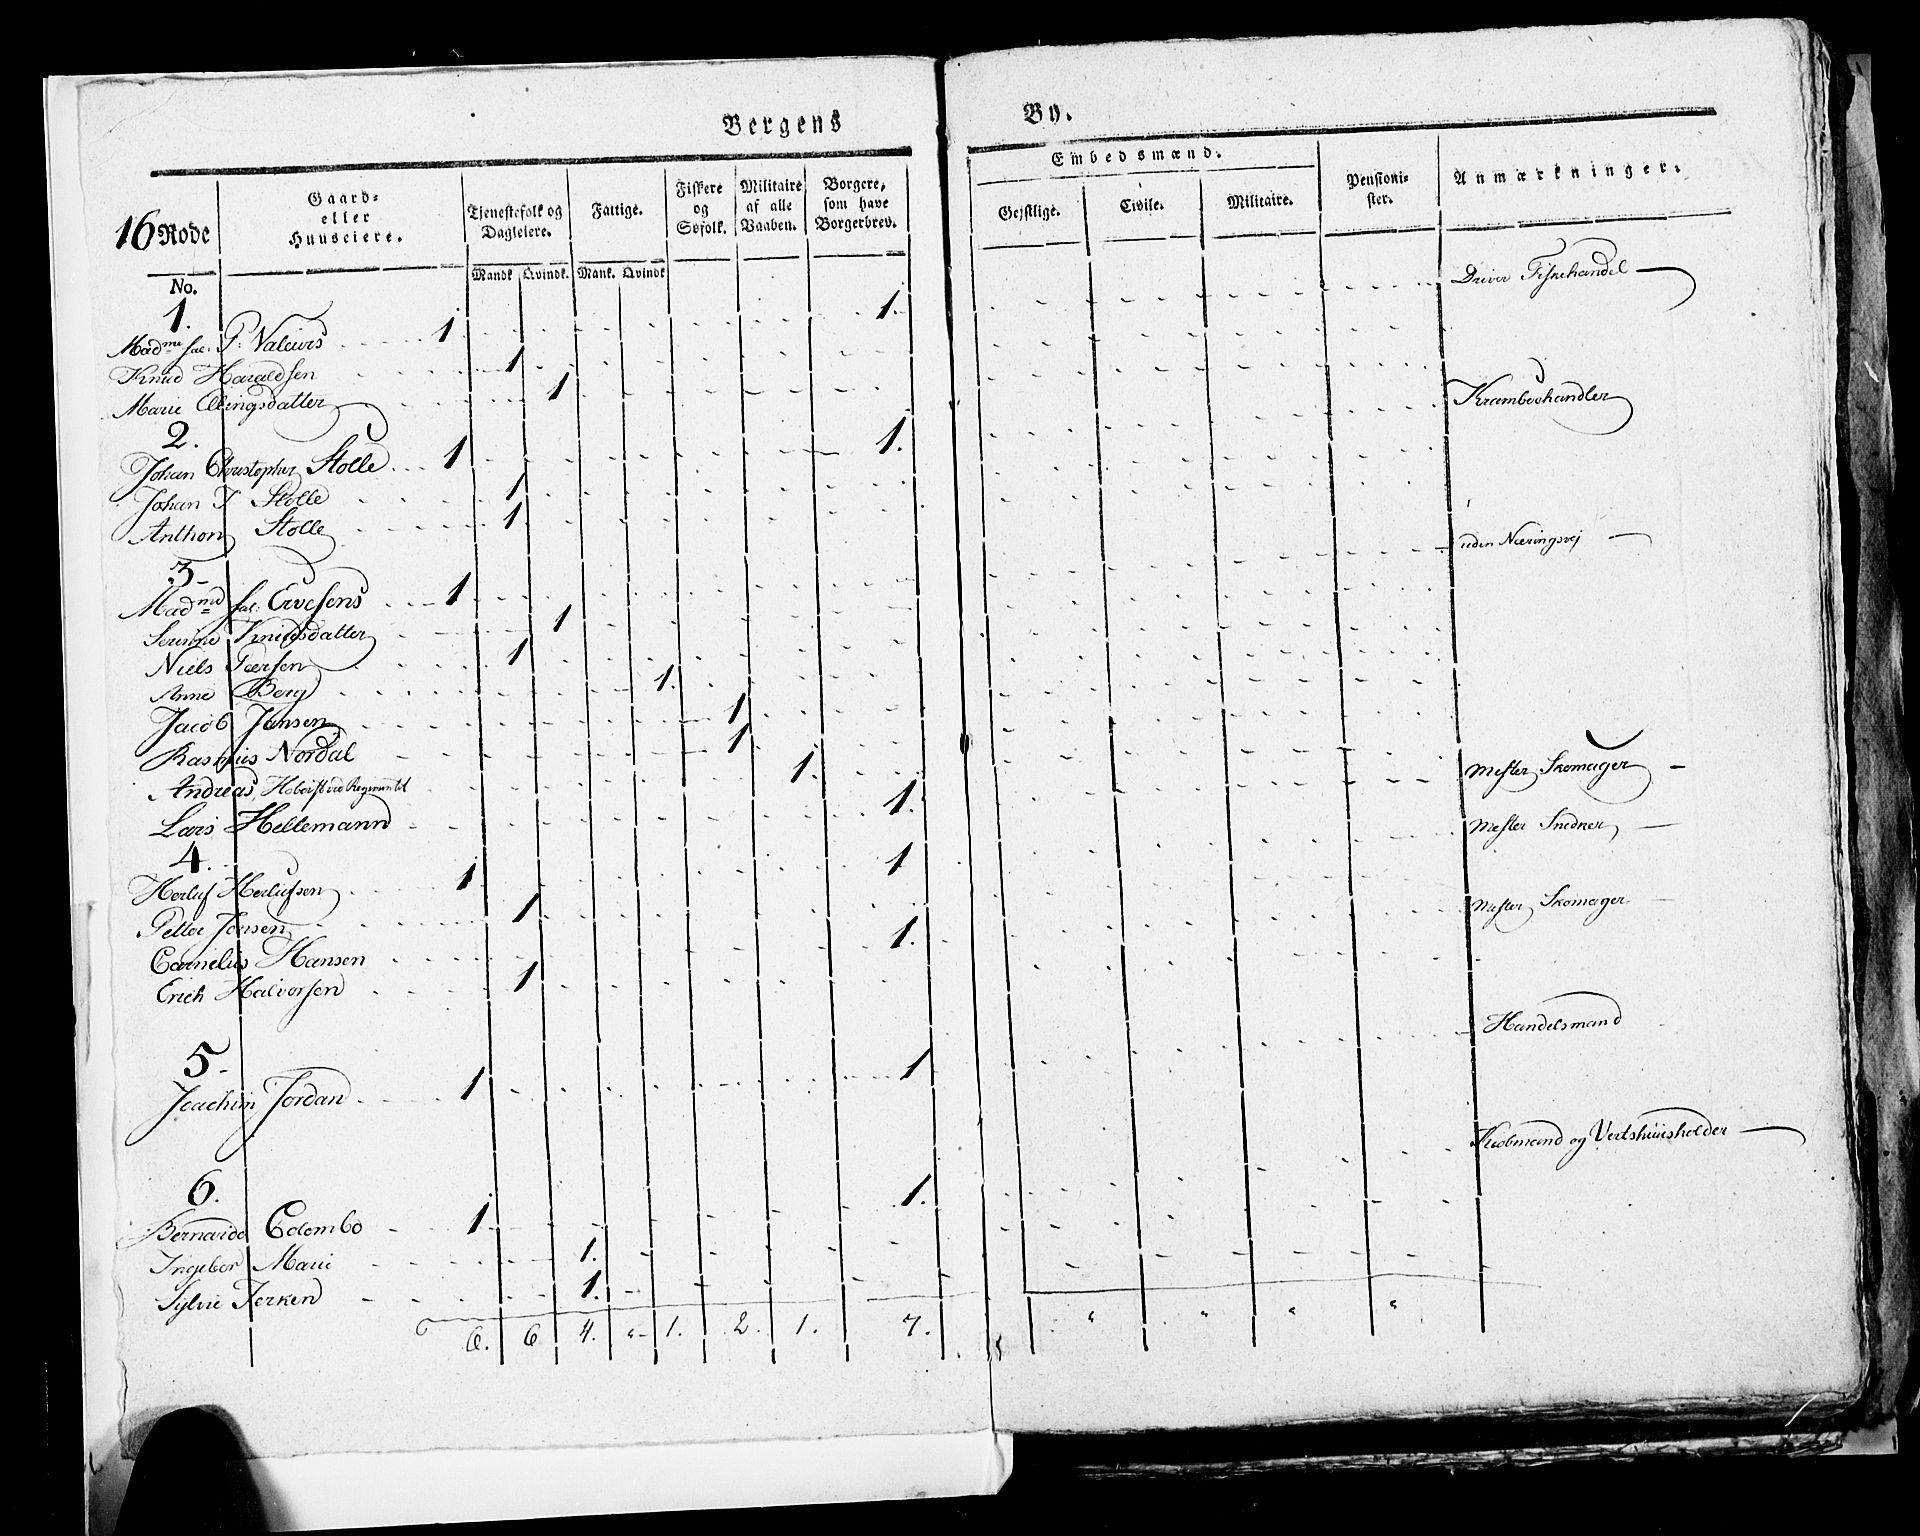 Bergens By.
16 Rode
Gaard-
eller
Huuseiere.
Tjenestefolk og
Dagleiere.
Fattige.
Fiskere
og
Søfolk.
Militaire
af alle
Vaaben.
Borgere,
som have
Borgerbrev.
Embedsmænd.
Gejstlige.
Civile.
Militaire.
Pensioni-
ster.
Anmærkninger.
No.
Mandk Qvindk. Mank. Qvindk
1. 1. Driver Fiskehandel
Madme sal: P: Valeurs 1
Knud Haraldsen 1
Marie Ellingsdatter 1
2. 1. Kramboehandler
Johan Christopher Stolle 1
Johan J Stolle 1
Anthon Stolle 1
3 uden Næringsvej
Madmd sal: Ervesens 1
Serinne Knudsdatter 1
Niels Pærsen 1
Anne Berg 1.
Jacob Jansen 1
Rasmus Nordal 1
Andreas, Hoboist ved Regimentet 1.
Lars Hellemann 1. Mester Skomager
4. 1 Mester Snedker
Herluf Herlufsen 1
Petter Jensen 1
Cornelius Hansen 1. Mester Skomager
Erich Halvorsen 1
5 1 Handelsmand
Joachim Jordan 1
6. 1. Kiøbmand og Vertshuusholder
Bernardo Colombo 1
Ingebor Marie 1.
Sylvie Jerken 1.
6. 6 4. „ 1. 2. 1. 7. „ „ „ „